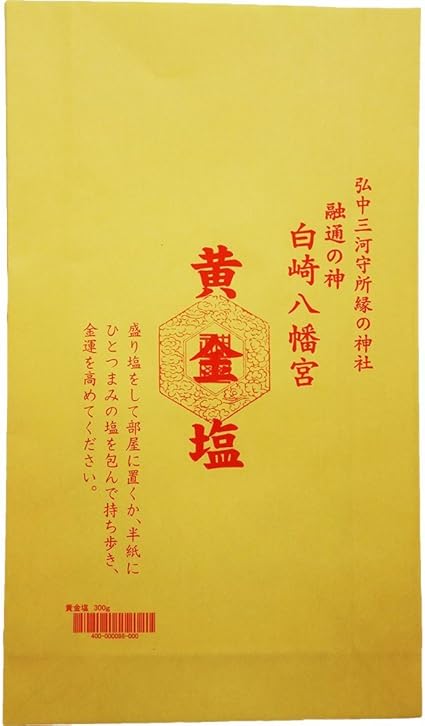 弘中三河守所縁の神社
融通の神
白崎八幡宮
黄金塩
盛り塩をして部屋に置くか、半紙に
ひとつまみの塩を包んで持ち歩き、
金運を高めてください。
黄金塩 300g
400-000086-000